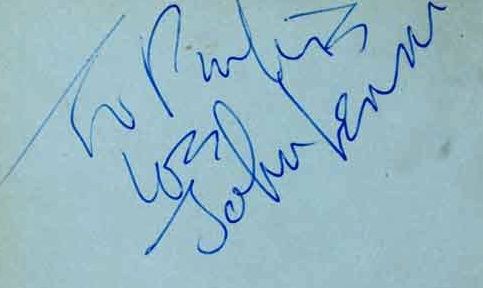 To
love
John Lennon